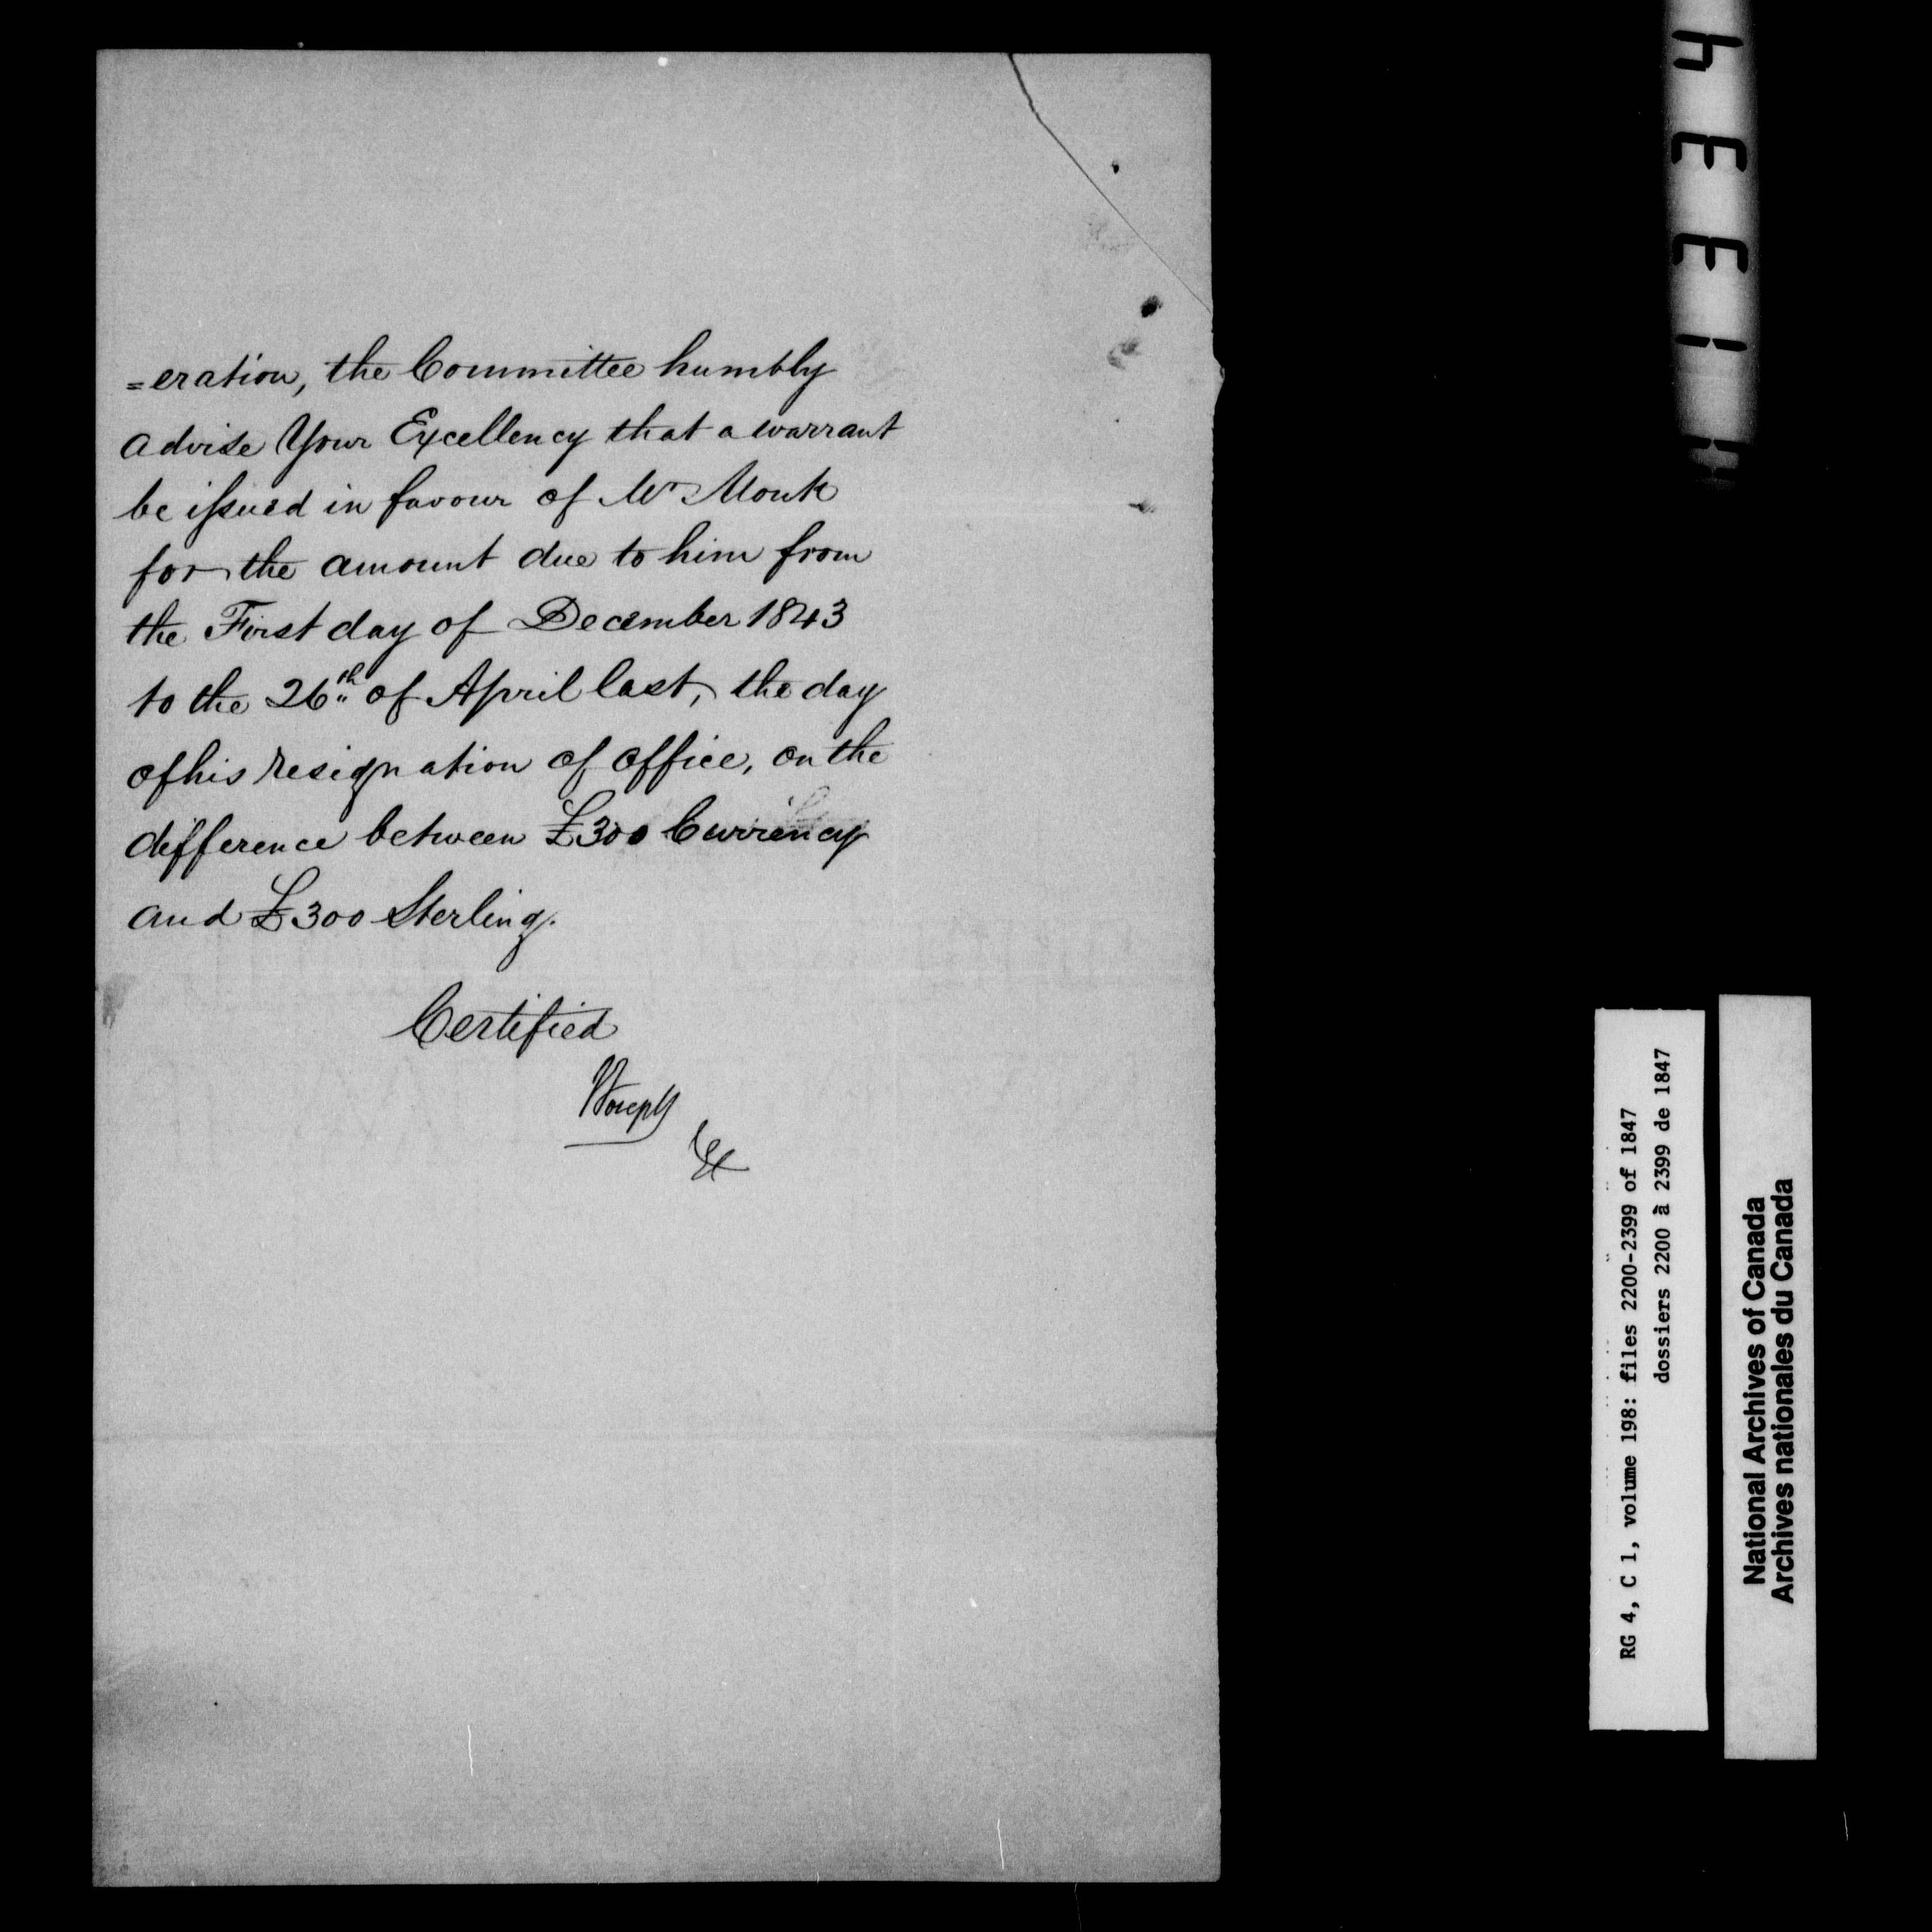 =eration, the Committee humbly
advise Your Excellency that a warrant
be issued in favour of Mr Monk
for the amount due to him from
the First day of December 1843
to the 26th of April last, the day
of his resignation of office, on the
difference between £300 Currency
and £300 Sterling.
Certified
RG 4, C 1, volume 198: files 2200-2399 of 1847
dossiers 2200 à 2399 de 1847
National Archives of Canada
Archives nationales du Canada